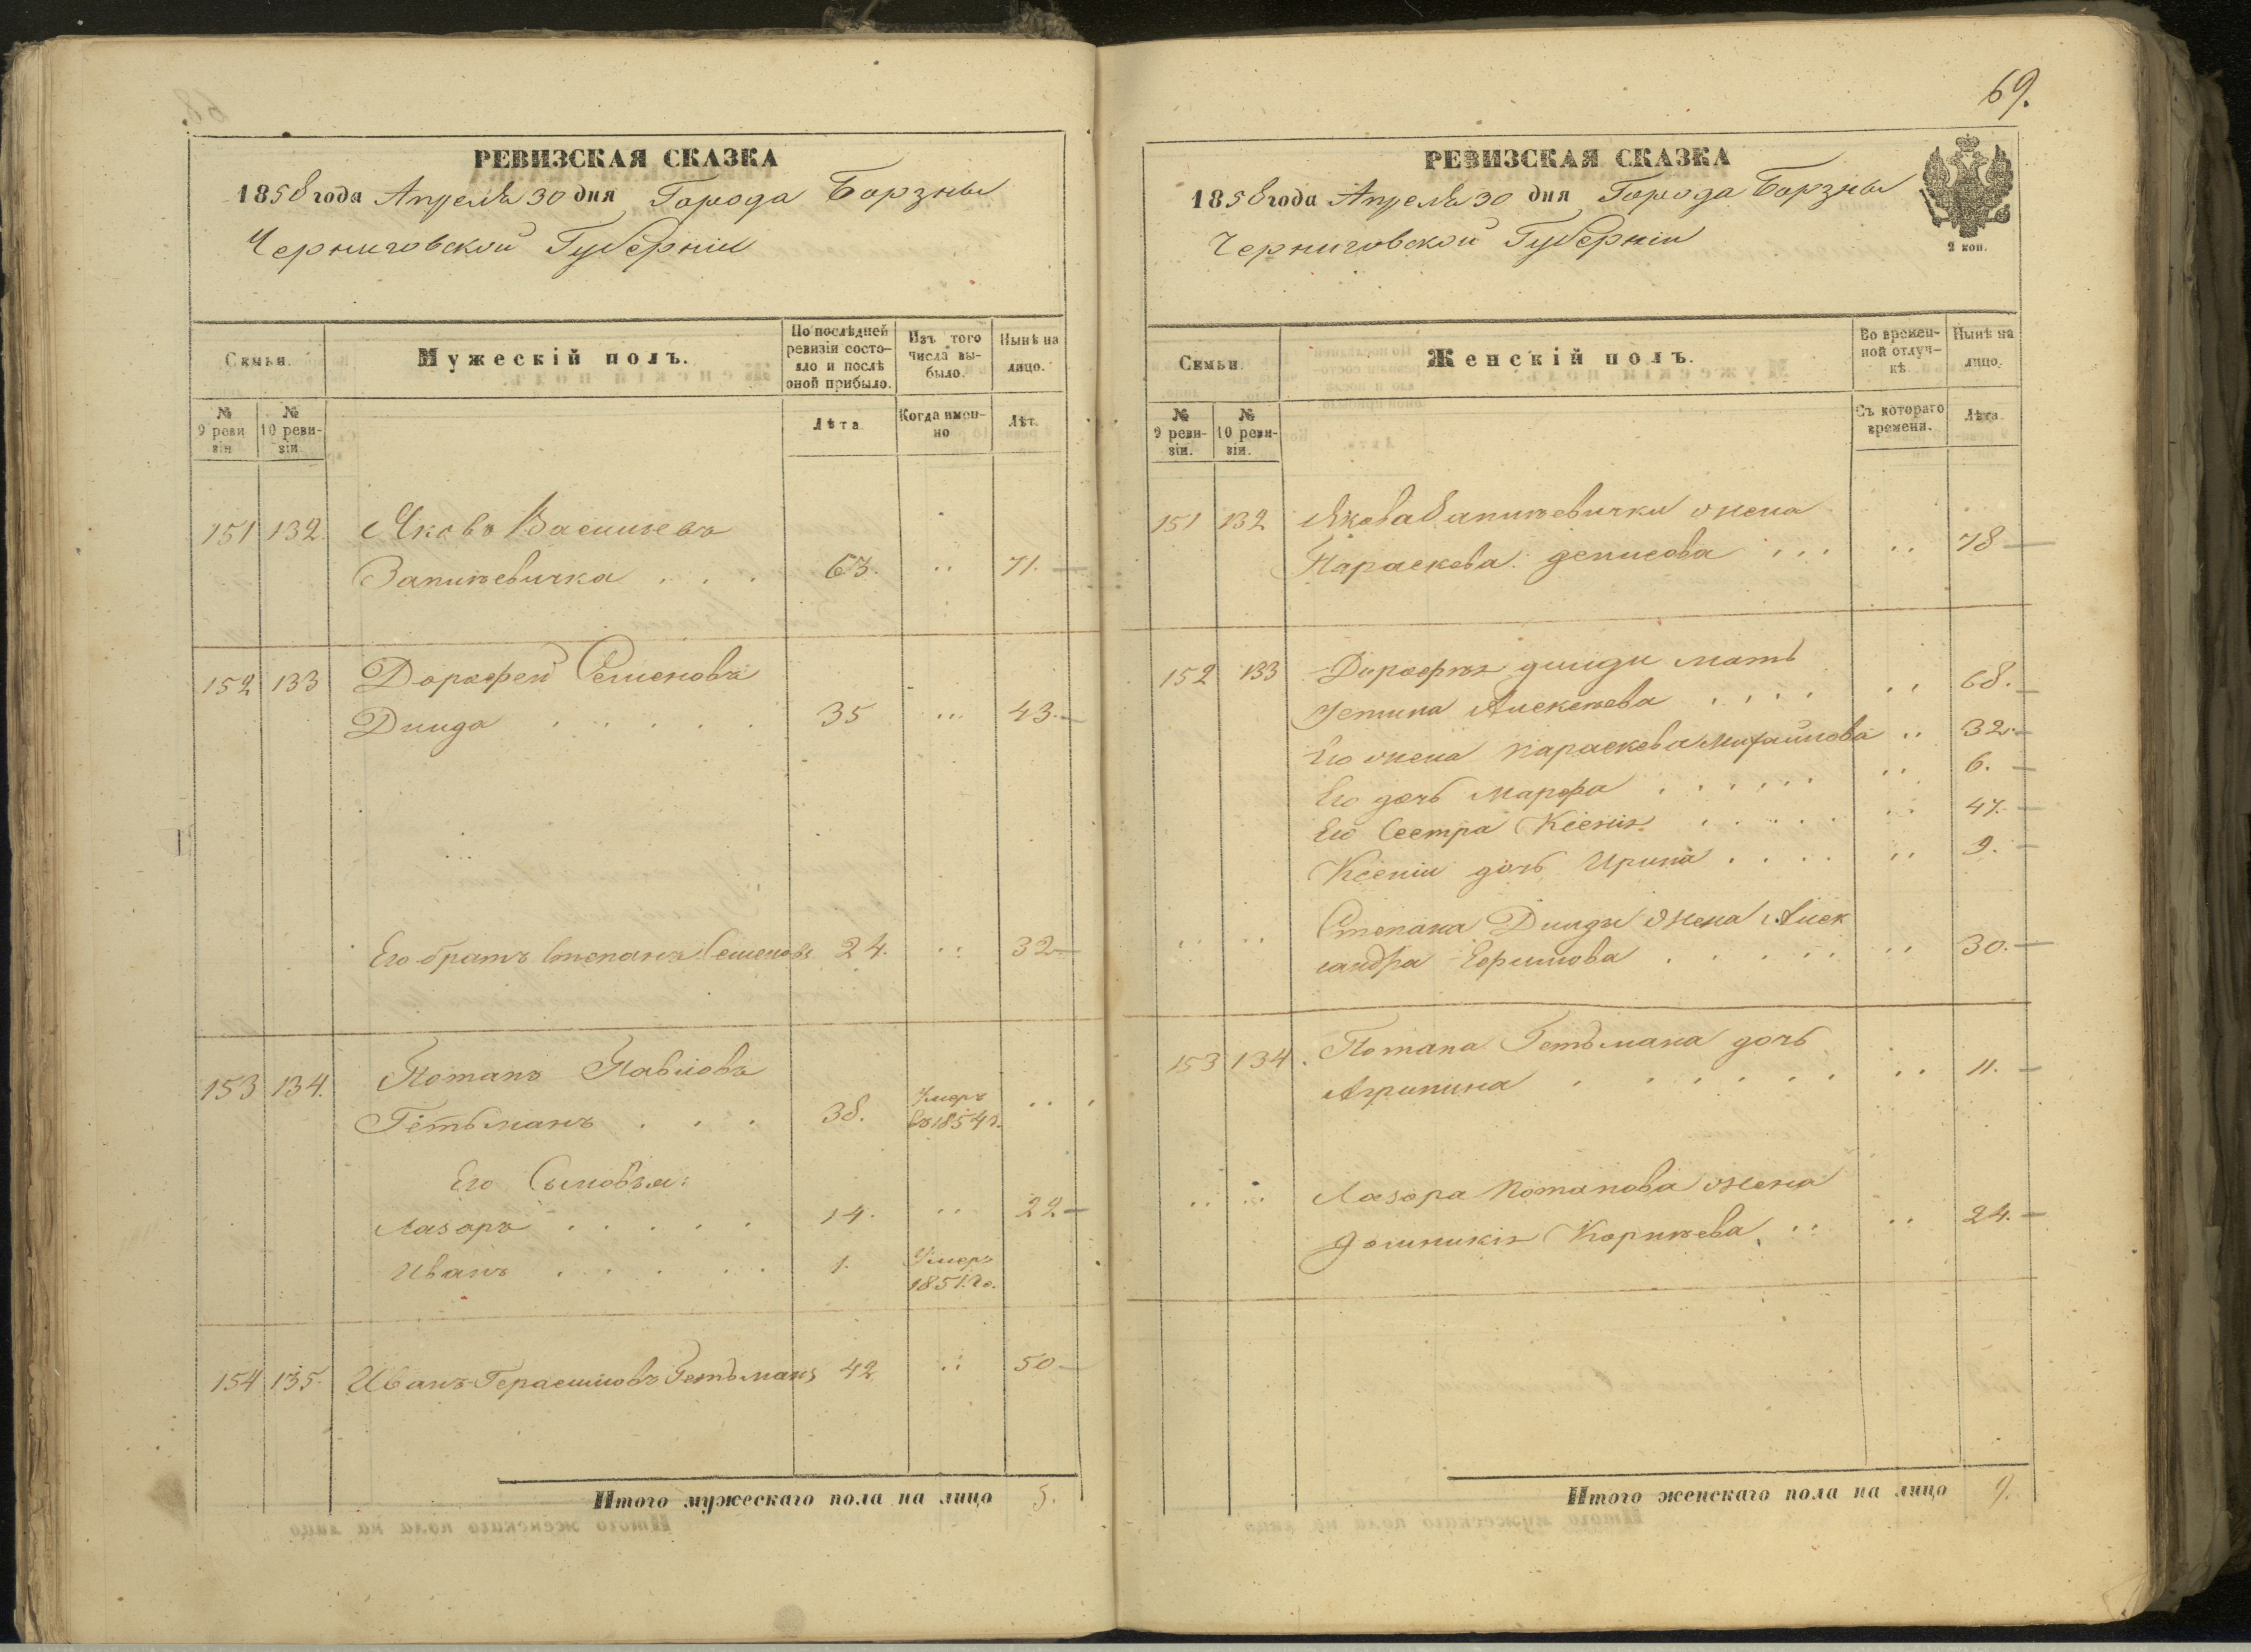 РЕВИЗСКАЯ СКАЗКА
1858 года Апреля 30 дня Города Борзны
Черниговской Губерніи
Семьи.
Мужескій полъ.
По послѣдней ревизіи состояло и послѣ оной прибыло.
Изъ того числа выбыло.
Нынѣ на лицо.
№ 9 ревизіи
№ 10 ревизіи.
Лѣта
Когда именно
Лѣт.
151 132. Яковъ Васильевъ
Запинкевичка . . . 63. .. 71. —
152 133 Дорофей Семеновъ
Дзида . . . . . 35 ... 43. —
Его братъ Степанъ Семеновъ 24. .. 32 —
153 134. Потапъ Павловъ
Гетьманъ . . . 38. Умеръ въ 1854 г. . . .
Его Сыновья:
Лазаръ . . . . . 14. .. 22 —
Иванъ . . . . . 1. Умеръ 1851. го.
154 135. Иванъ Герасимовъ Гетьманъ 42 .. 50 —
Итого мужескаго пола на лицо 5.
69.
РЕВИЗСКАЯ СКАЗКА
1858 года Апреля 30 дня Города Борзны
Черниговской Губерніи
2 коп.
Семьи.
Женскій полъ.
Во временной отлучкѣ
Нынѣ на лицо.
№ 9 ревизіи.
№ 10 ревизіи.
Съ котораго времени.
Лѣта.
151 132 Якова жена
Параскева Денисова . . . .. 78 —
152 133 Дорофея мать
Устина Алексеева . . . . .. 68. —
Его жена Параскева Михайлова .. 32. —
Его дочь Марфа . . . . . .. 6. —
Его Сестра Ксенія . . . . . .. 47. —
Ксеніи дочь Ирина . . . . .. 9. —
.. .. Степана жена Алек
сандра Ефимова . . . . . .. 30. —
153 134. Потапа Гетьмана дочь
Агрипина . . . . . . .. 11. —
.. .. Лазора Потапова жена
Домникія Корнеева .. .. 24. —
Итого женскаго пола на лицо 9.